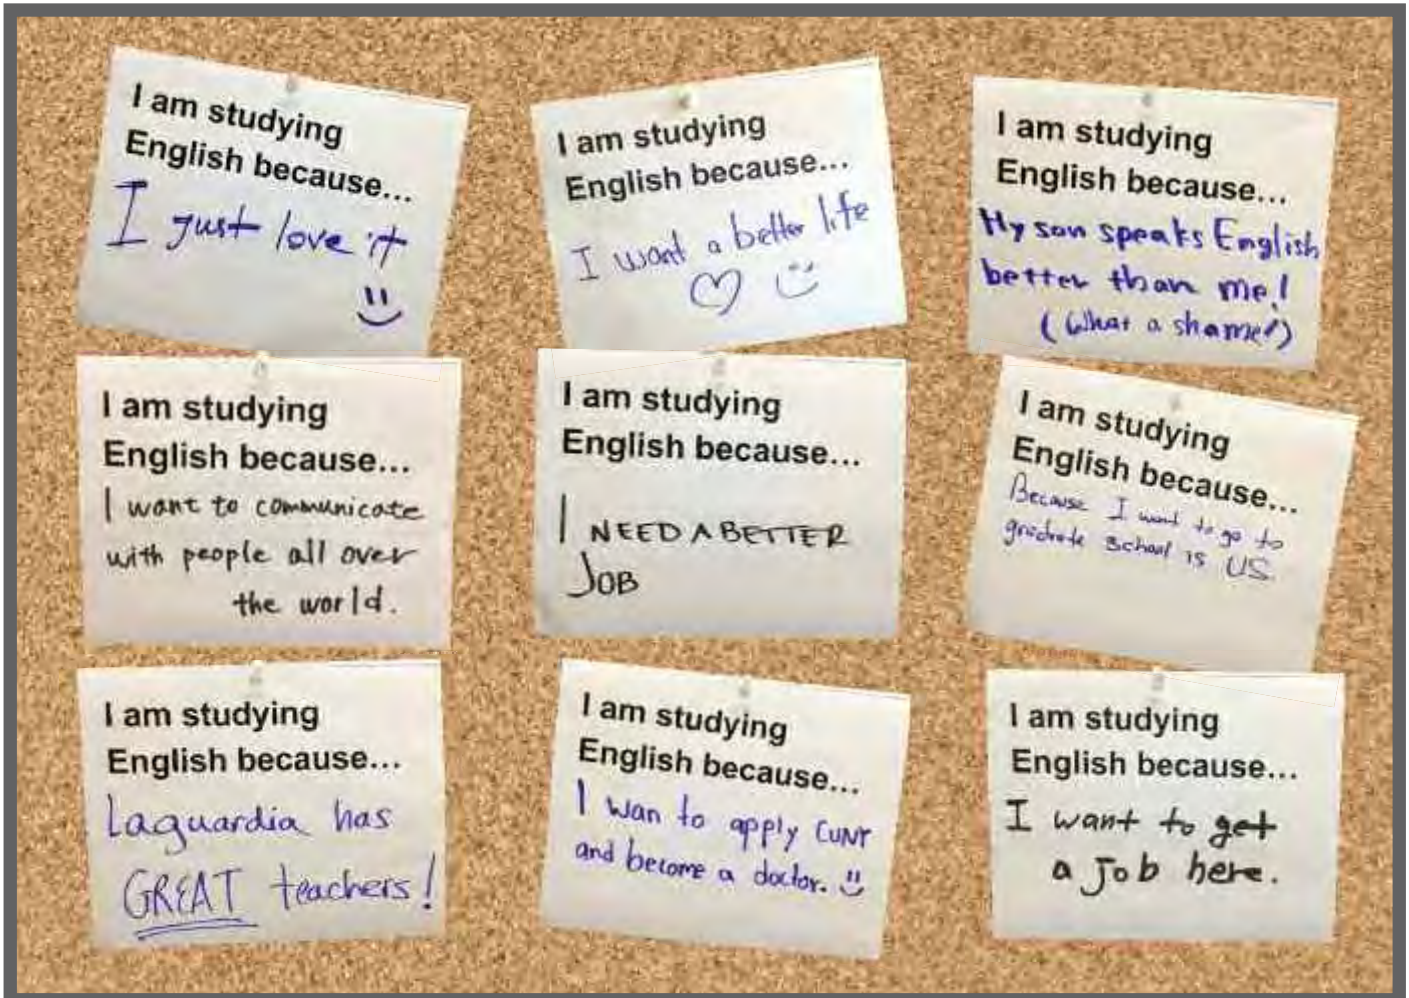 I am studying
English because...
I just love it
I am studying
English because...
I want a better life
I am studying
English because...
My son speaks English
better than me!
(What a shame!)
I am studying
English because...
I want to communicate
with people all over
the world.
I am studying
English because...
I NEED A BETTER
JOB
I am studying
English because...
Because I want to go to
graduate school is US
I am studying
English because...
Laguardia has
GREAT teachers!
I am studying
English because...
I wan to apply CUNY
and become a doctor.
I am studying
English because...
I want to get
a job here.